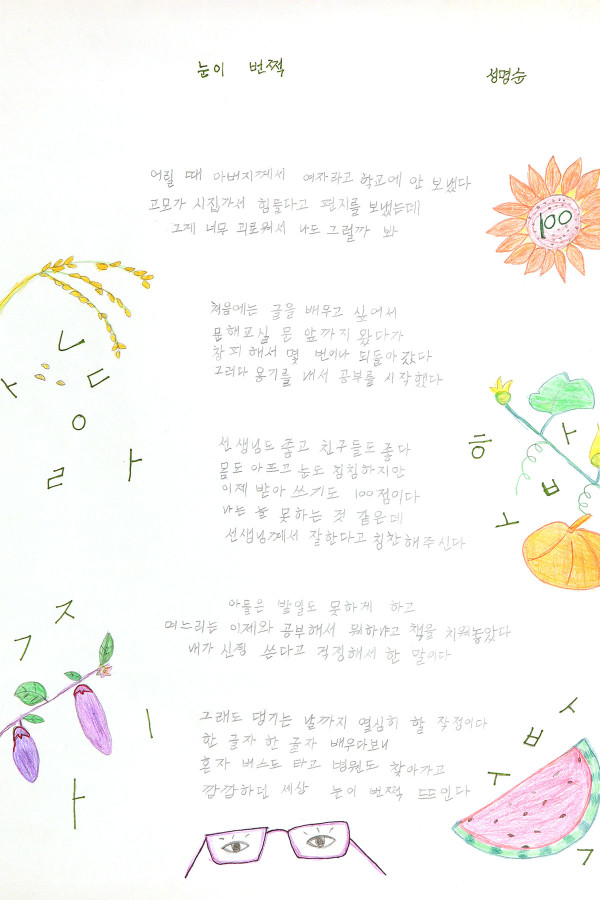 눈이 번쩍
성명순
어릴 때 아버지께서 여자라고 학교에 안 보냈다
고모가 시집가서 힘들다고 편지를 보냈는데
그게 너무 괴로워서 나도 그럴까 봐
100
처음에는 글을 배우고 싶어서
문해교실 문 앞까지 왔다가
창피해서 몇 번이나 되돌아갔다
그러다 용기를 내서 공부를 시작했다
ㄴ
ㅅ ㄷ
ㅇ
ㄹ ㅏ
선생님도 좋고 친구들도 좋다
몸도 아프고 눈도 침침하지만
이제 받아 쓰기도 100점이다
나는 늘 못하는 것 같은데
선생님께서 잘한다고 칭찬해주신다
ㅎ ㅗ
ㅂ
ㅜ
아들은 밭일도 못하게 하고
며느리는 이제와 공부해서 뭐하냐고 책을 치워놓았다
내가 신경 쓴다고 걱정해서 한 말이다
ㅈ
ㄱ
ㅣ
ㅏ
그래도 댕기는 날까지 열심히 할 작정이다
한 글자 한 글자 배우다보니
혼자 버스도 타고 병원도 찾아가고
깜깜하던 세상 눈이 번쩍 뜨인다
ㅅ
ㅂ
ㅜ
ㄱ